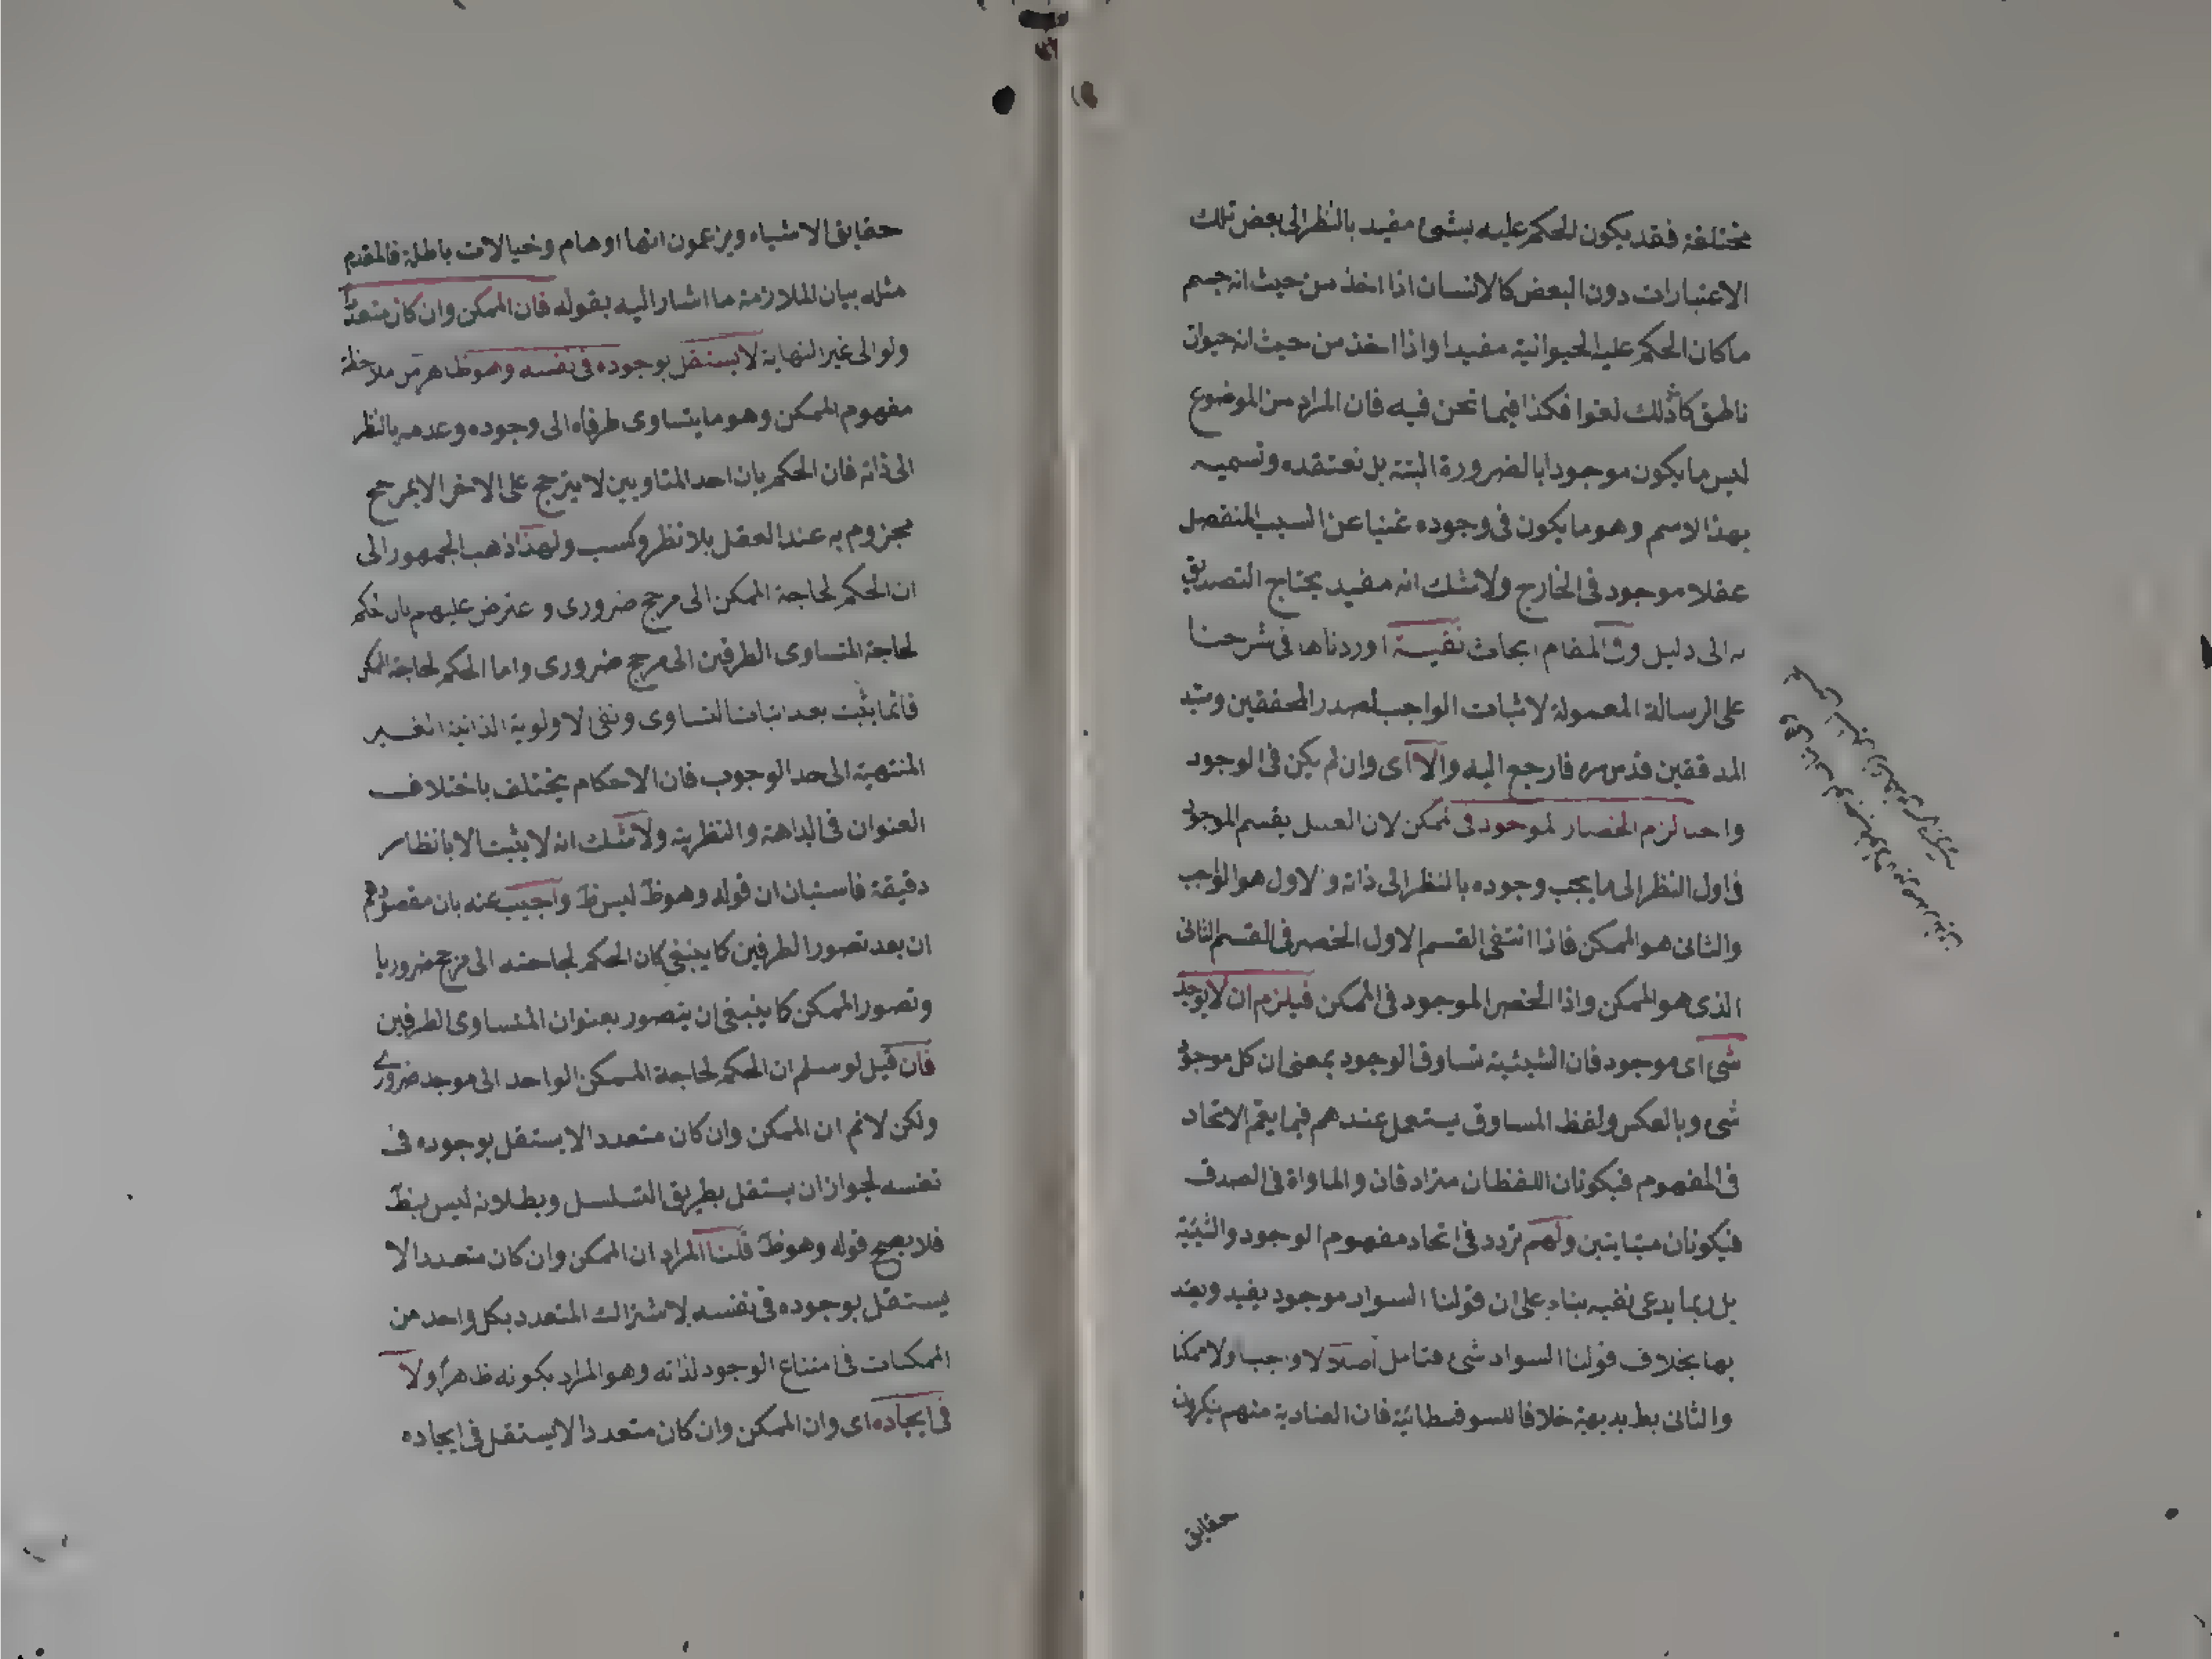 مختلفة فقد يكون الحكم عليه بشئ مفيد بالنظر الى بعض تلك
الاعتبارات دون البعض كالانسان اذا اخذ من حيث انه جسم
ما كان الحكم عليه الحيوانية مفيدا واذا اخذ من حيث انه حيوان
ناطق كا ذلك لغوا فكذا فيما نحن فيه فان المراد من الموضوع
ليس ما يكون موجودا بالضرورة البتة بل نعتقده ونسميه
بهذا الاسم وهو ما يكون في وجوده غنيا عن السبب المنفصل
عقلا موجود في الخارج ولا شك انه مفيد يحتاج التصديق
به الى دليل وفي المقام ابحاث نفيسة اوردناها في شرحنا
على الرسالة المعمولة لاثبات الواجب لصدر المحققين وسيد
المدققين قدس سره فارجع اليه والا اى وان لم يكن في الوجود
واجب لزم انحصار الموجود في الممكن لان العقل يقسم الموجود
في اول النظر الى ما يجب وجوده بالنظر الى ذاته والاول هو الواجب
والثانى هو الممكن فاذا انتفى القسم الاول انحصر في القسم الثانى
الذى هو الممكن واذا انحصر الموجود في الممكن فيلزم ان لا يوجد
شئ اى موجود فان الشيئية تساوق الوجود بمعنى ان كل موجود
شئ وبالعكس ولفظ المساوق يستعمل عندهم فيما يعم الاتحاد
في المفهوم فيكونان اللفظان مترادفان والمساواة في الصدق
فيكونان متباينين ولهم تردد في اتحاد مفهوم الوجود والشيئية
بل ربما يدعى نفيه بناء على ان قولنا السواد موجود يفيد ويعتد
بها بخلاف قولنا السواد شئ فتامل اصلا لا واجبا ولا ممكنا
والثانى بط بديهة خلافا للسوفسطائية فان العنادية منهم ينكرون
حقايق
حقايق الاشياء ويزعمون انها اوهام وخيالات باطلة فالمقدم
مثله بيان الملازمة ما اشار اليه بقوله فان الممكن وان كان متعددا
ولو الى غير النهاية لا يستقل بوجوده في نفسه وهو ظاهر من ملاحظة
مفهوم الممكن وهو ما يتساوى طرفاه الى وجوده وعدمه بالنظر
الى ذاته فان الحكم بان احد المتساويين لا يترجح على الاخر الا بمرجح
مجزوم به عند العقل بلا نظر وكسب ولهذا ذهب الجمهور الى
ان الحكم لحاجة الممكن الى مرجح ضرورى واعترض عليهم بان الحكم
لحاجة المتساوى الطرفين الى مرجح ضرورى واما الحكم لحاجة الممكن
فانما يثبت بعد اثبات التساوى ونفى الاولوية الذاتية الغير
المنتهية الى حد الوجوب فان الاحكام يختلف باختلاف
العنوان في البداهة والنظرية ولا شك انه لا يثبت الا بانظار
دقيقة فاستبان ان قوله وهو ظ ليس ظ واجيب عنه بان مقصودهم
ان بعد تصور الطرفين كما ينبغي كان الحكم لحاجته الى مرجح ضروريا
وتصور الممكن كما ينبغي ان يتصور بعنوان المتساوى الطرفين
فان قيل لو سلم ان الحكم لحاجة الممكن الواحد الى موجد ضرورى
ولكن لا نم ان الممكن وان كان متعددا لا يستقل بوجوده في
نفسه لجواز ان يستقل بطريق التسلسل وبطلانه ليس بظ
فلا يصح قوله وهو ظ قلنا المراد ان الممكن وان كان متعددا لا
يستقل بوجوده في نفسه لاشتراك المتعدد بكل واحد من
الممكنات في امتناع الوجود لذاته وهو المراد بكونه ظاهرا ولا
في ايجاده اى وان الممكن وان كان متعددا لا يستقل في ايجاده